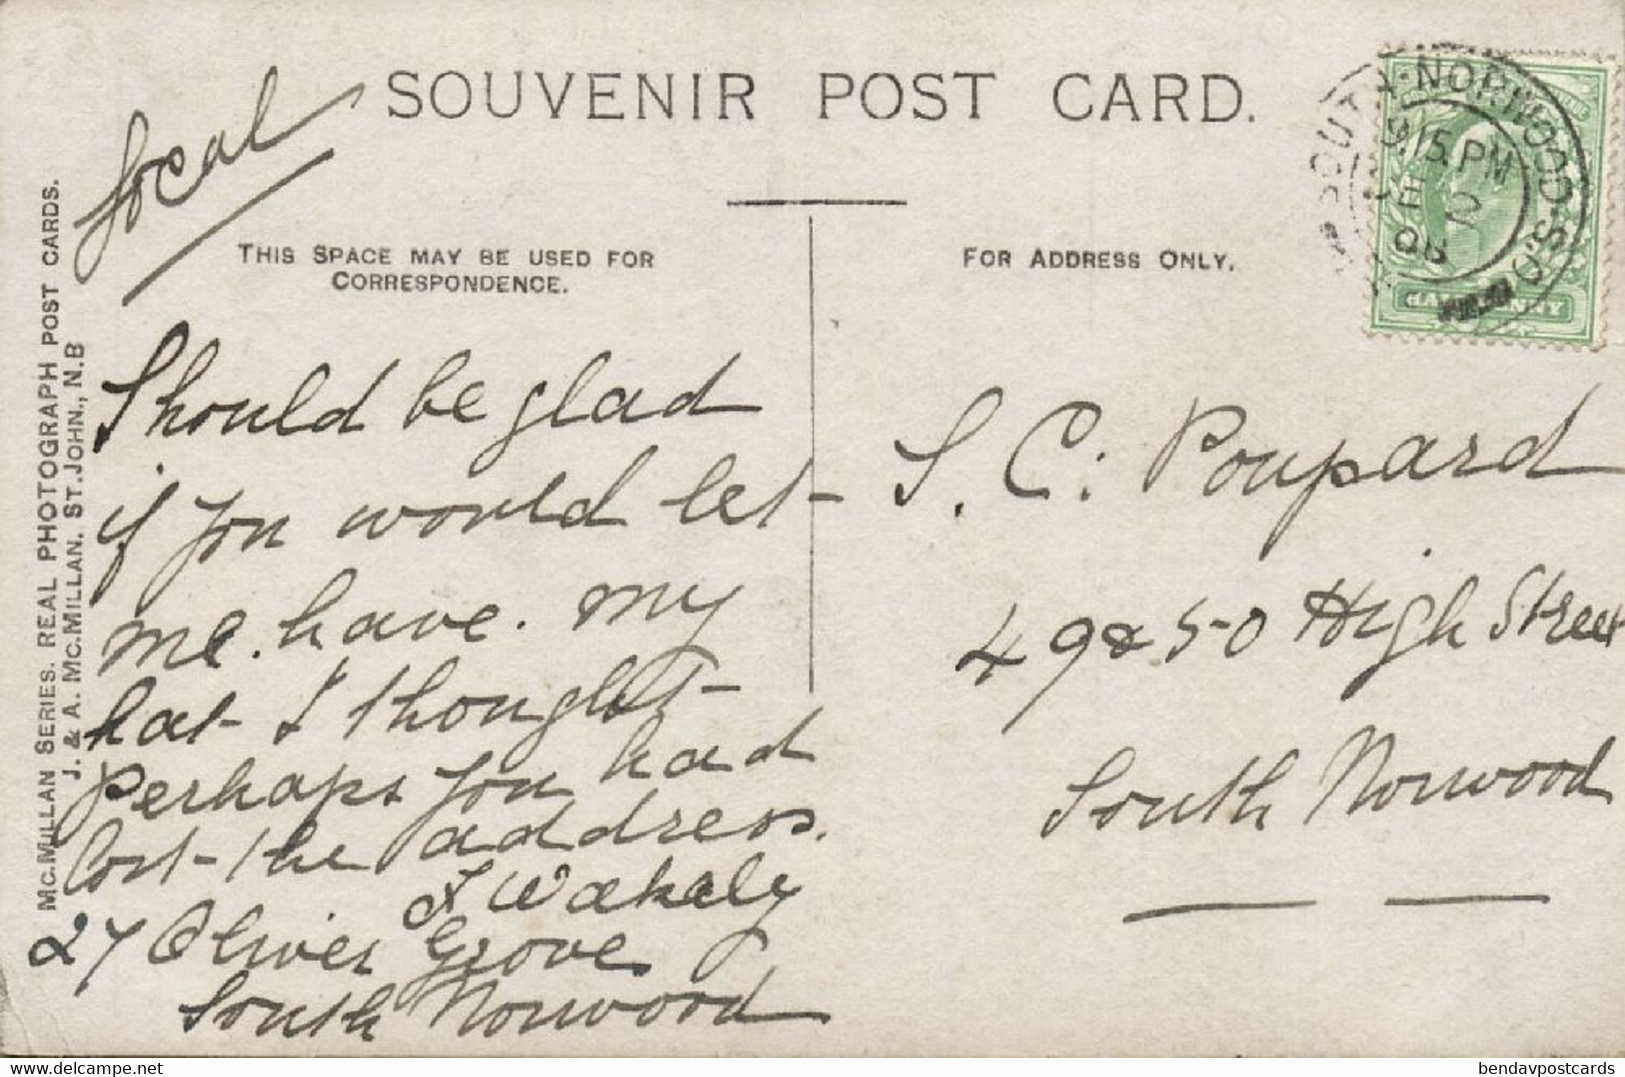 SOUVENIR POST CARD.
local
THIS SPACE MAY BE USED FOR
CORRESPONDENCE.
FOR ADDRESS ONLY.
SOUTH-NORWOOD·S.O
9.15.PM
2
08
MC.MILLAN SERIES. REAL PHOTOGRAPH POST CARDS.
J. & A. MC.MILLAN. ST.JOHN., N.B
Should be glad
if you would let
me. have. my
hat I thought
perhaps you had
lost the address.
Wakely
27 Oliver Grove
South Norwood
S. C. Poupard
49 & 50 High Street
South Norwood
bendavpostcards